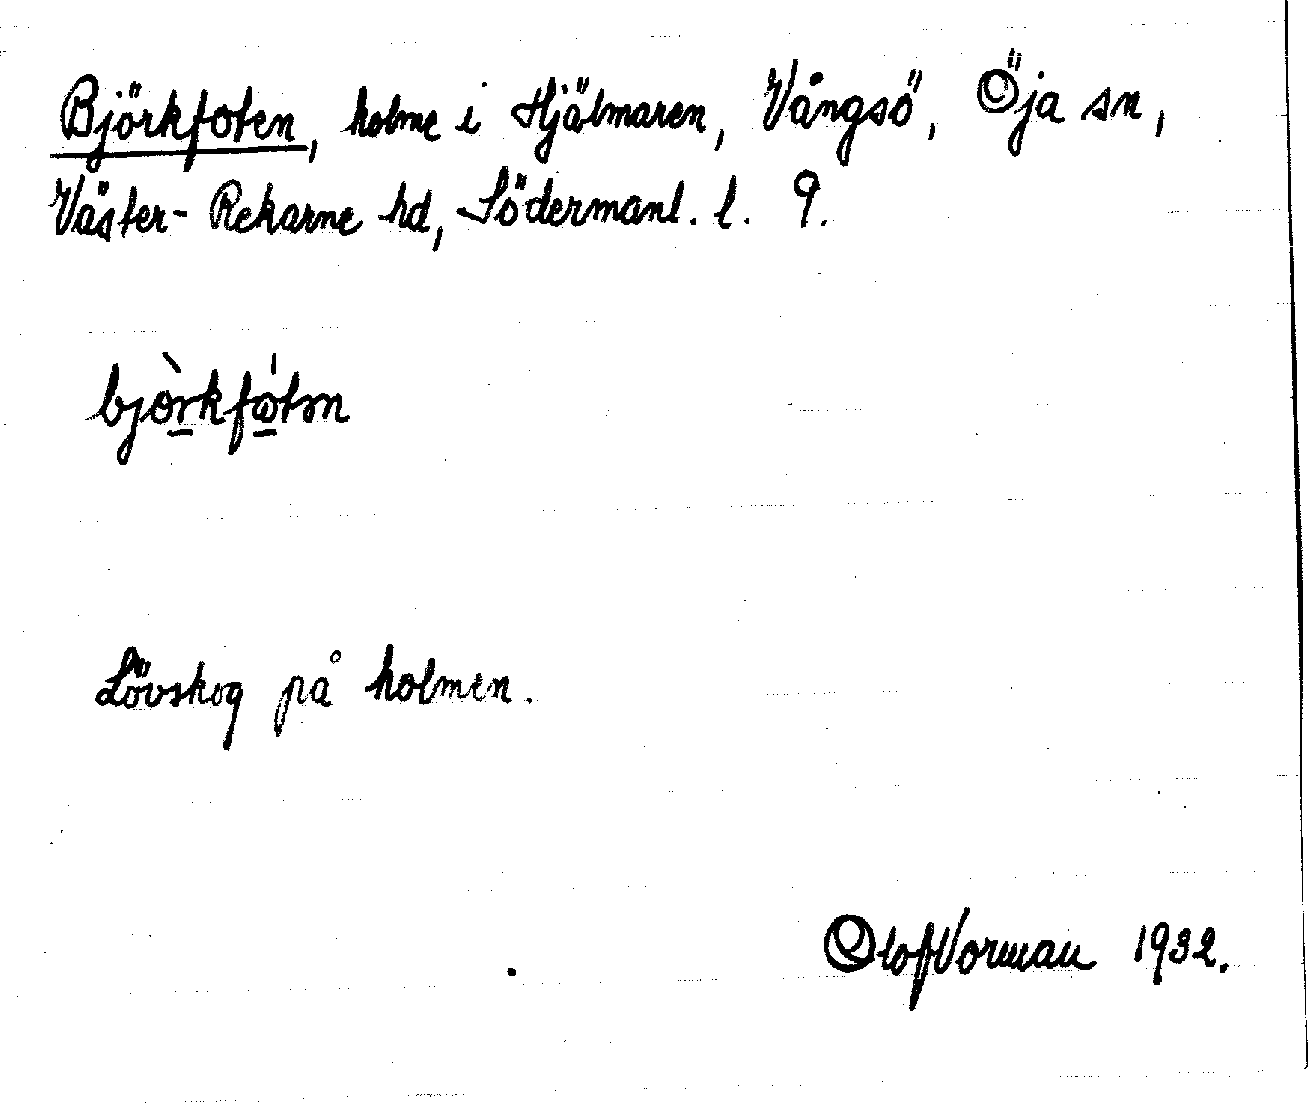 Björkfoten, holme i Hjälmaren, Vångsö, Öja sn,
Väster-Rekarne hd, Södermanl. l. 9.
Lövskog på holmen.
Olof Vorman 1932.